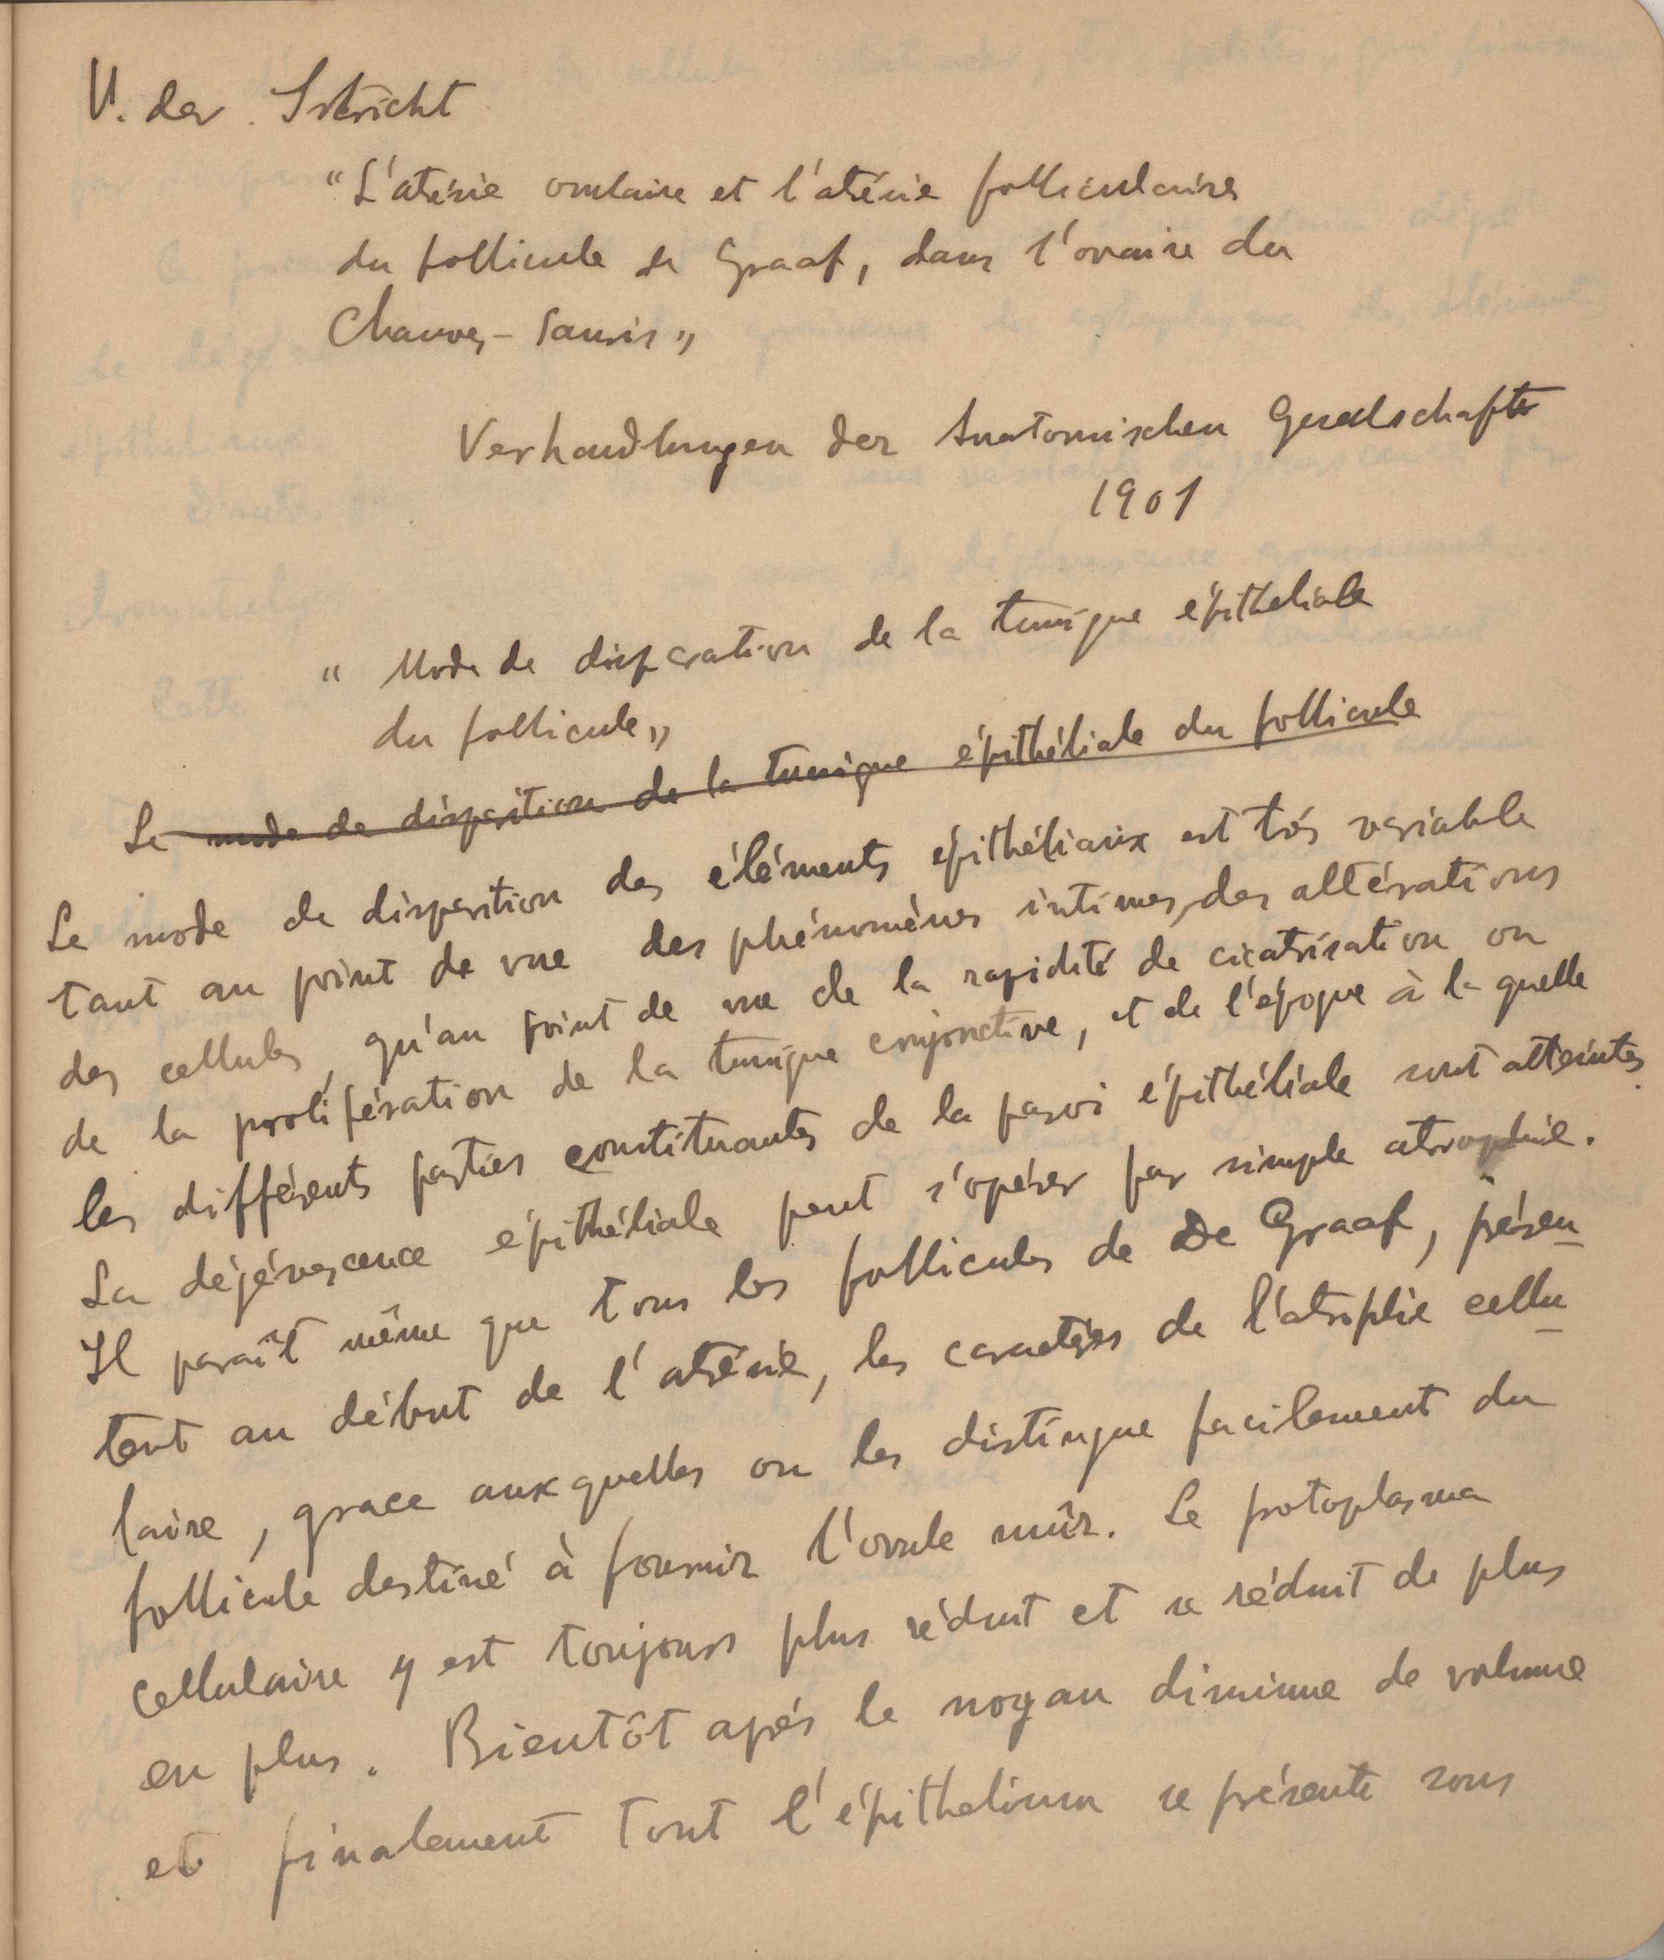 V. der Stricht
"L'atrésie ovulaire et l'atrésie folliculaires
du follicule de Graaf, dans l'ovaire du
Chauves-Souris"
Verhandlungen der Anatomischen Gesellschaft
1901
"Mode de disparation de la tunique épitheliale
du follicule"
Le mode de disparition de la tunique épithéliale du follicule
Le mode de disparition des éléments épithéliaux est trés variable
tant au point de vue des phénomènes intimes, des altérations
des cellules, qu'au point de vue de la rapidité de cicatrisation ou
de la prolifération de la tunique conjonctive, et de l'époque à la quelle
les différents parties constituantes de la paroi épithéliale sont atteintes.
La dégénerescence épithéliale peut s'opérer par simple atrophie.
Il paraît même que tous les follicules de De Graaf, présen
tent au début de l'atrésie, les caractères de l'atrophie cellu
laire, grace aux quelles on les distingue facilement du
follicule destiné à fournir l'ovule mûr. Le protoplasma
cellulaire y est toujours plus réduit et se réduit de plus
en plus. Bientôt aprés le noyau diminue de volume
et finalement tout l'épithelium se présente sous